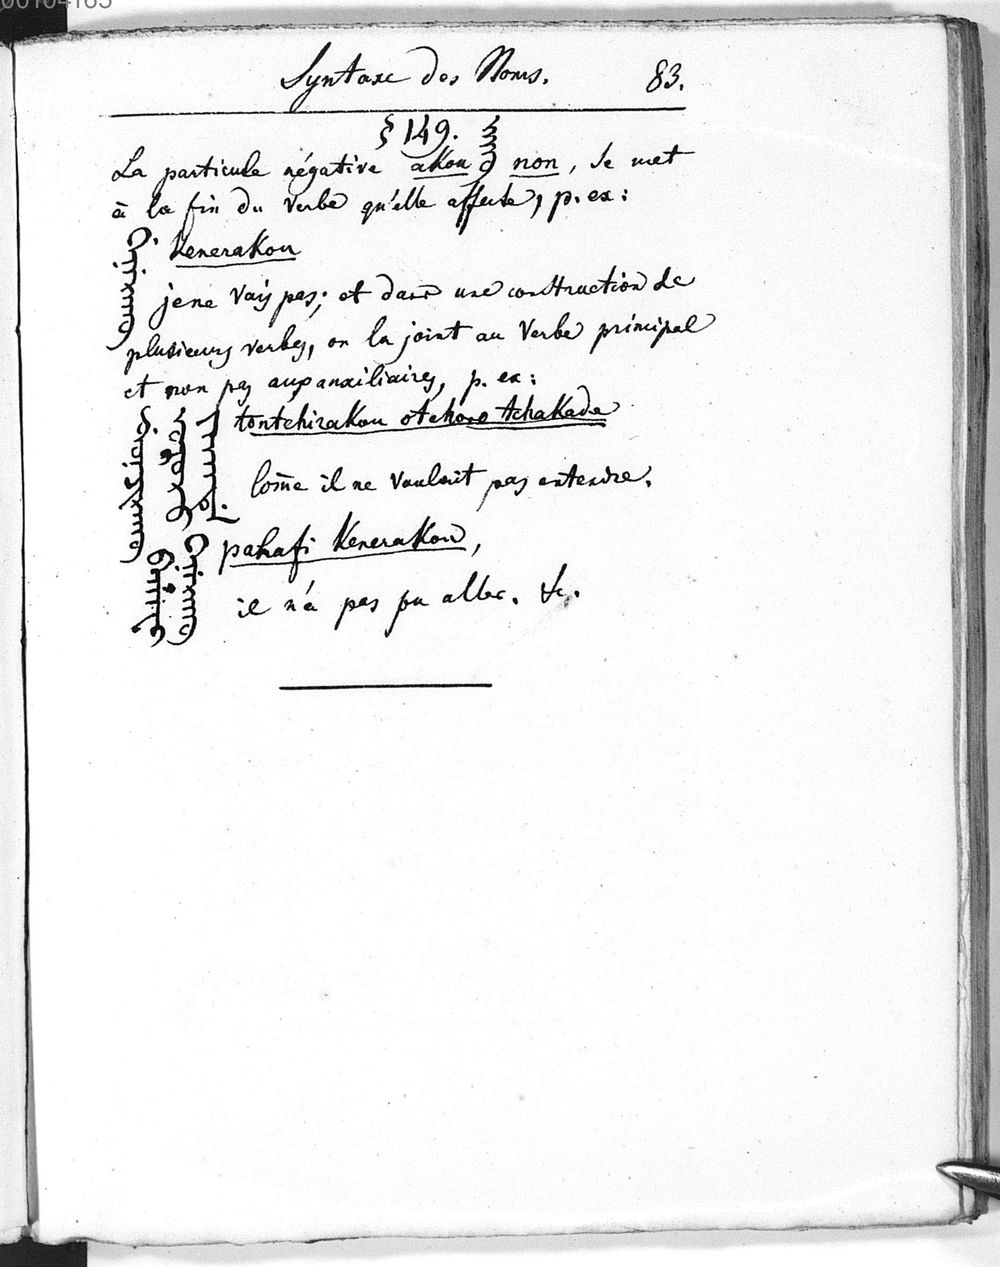 00104165
Syntaxe des Noms. 83.
§ 149.
La particule négative akou ᠠᡴᡡ non, se met
à la fin du verbe qu'elle affecte, p. ex:
ᡤᡝᠨᡝᡵᠠᡴᡡ kenerakou
je ne vais pas; et dans une construction de
plusieurs verbes, on la joint au Verbe principal
et non pas aux auxiliaires, p. ex:
tontchirakou otchoro tchakade
Comẽ il ne voulait pas entendre.
pahafi kenerakou,
il n'a pas pu aller. &c.